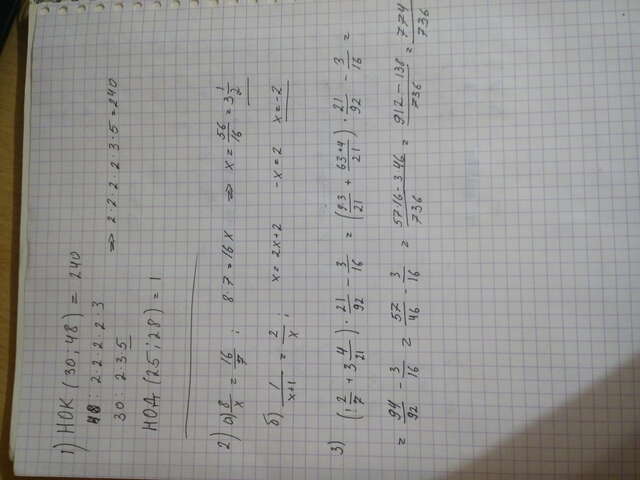 1) НОК (30; 48) = 240
48: 2·2·2·2·3
30: 2·3·5 => 2·2·2·2·3·5 = 240
НОД (25; 28) = 1
2) а) 8/x = 16/7 ; 8·7 = 16x => x = 56/16 = 3 1/2
б) 1/(x+1) = 2/x ; x = 2x+2 -x = 2 x = -2
3) (1 2/7 + 3 4/21) · 21/92 - 3/16 = (9·3/21 + 63+4/21) · 21/92 - 3/16 =
= 94/92 - 3/16 = 57/46 - 3/16 = 57·16 - 3·46/736 = 912 - 138/736 = 774/736